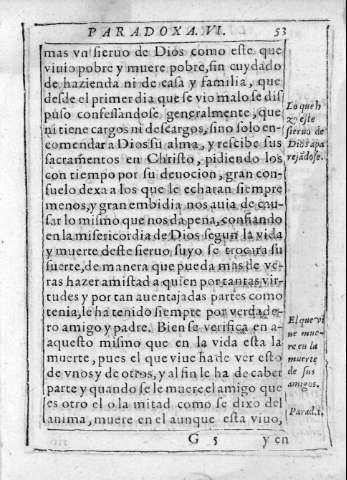 PARADOXA. VI. 53
mas vn sieruo de Dios como este que
viuio pobre y muere pobre, sin cuydado
de hazienda ni de casa y familia, que
desde el primer dia que se vio malo se dis
puso confessandose generalmente, que
ni tiene cargos ni descargos, sino solo en-
comendar a Dios su alma, y rescibe sus
sacramentos en Christo, pidiendo los
con tiempo por su deuocion, gran con-
suelo dexa a los que le echaran siempre
menos, y gran embidia nos auia de cau-
sar lo mismo que nos da pena, confiando
en la misericordia de Dios segun la vida
y muerte deste sieruo suyo se trocara su
suerte, de manera que pueda mas de ve-
ras hazer amistad a quien por tantas vir-
tudes y por tan auentajadas partes como
tenia, le ha tenido siempre por verdade-
ro amigo y padre. Bien se verifica en a-
aquesto mismo que en la vida esta la
muerte, pues el que viue ha de ver esto
de vnos y de otros, y al fin le ha de caber
parte y quando se le muere el amigo que
es otro el o la mitad como se dixo del
anima, muere en el aunque esta viuo,
G 5 y en
Lo que h
zo este
sieruo de
Dios apa
rejãdose.
El que vi
ue mue-
re en la
muerte
de sus
amigos.
Parad. 1.